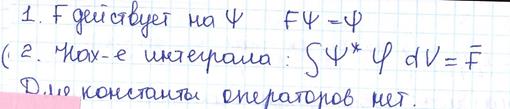 1. F действует на Ψ FΨ = φ
(2. Нах-е интеграла : ∫Ψ* φ dV = F̄
Для константы операторов нет.